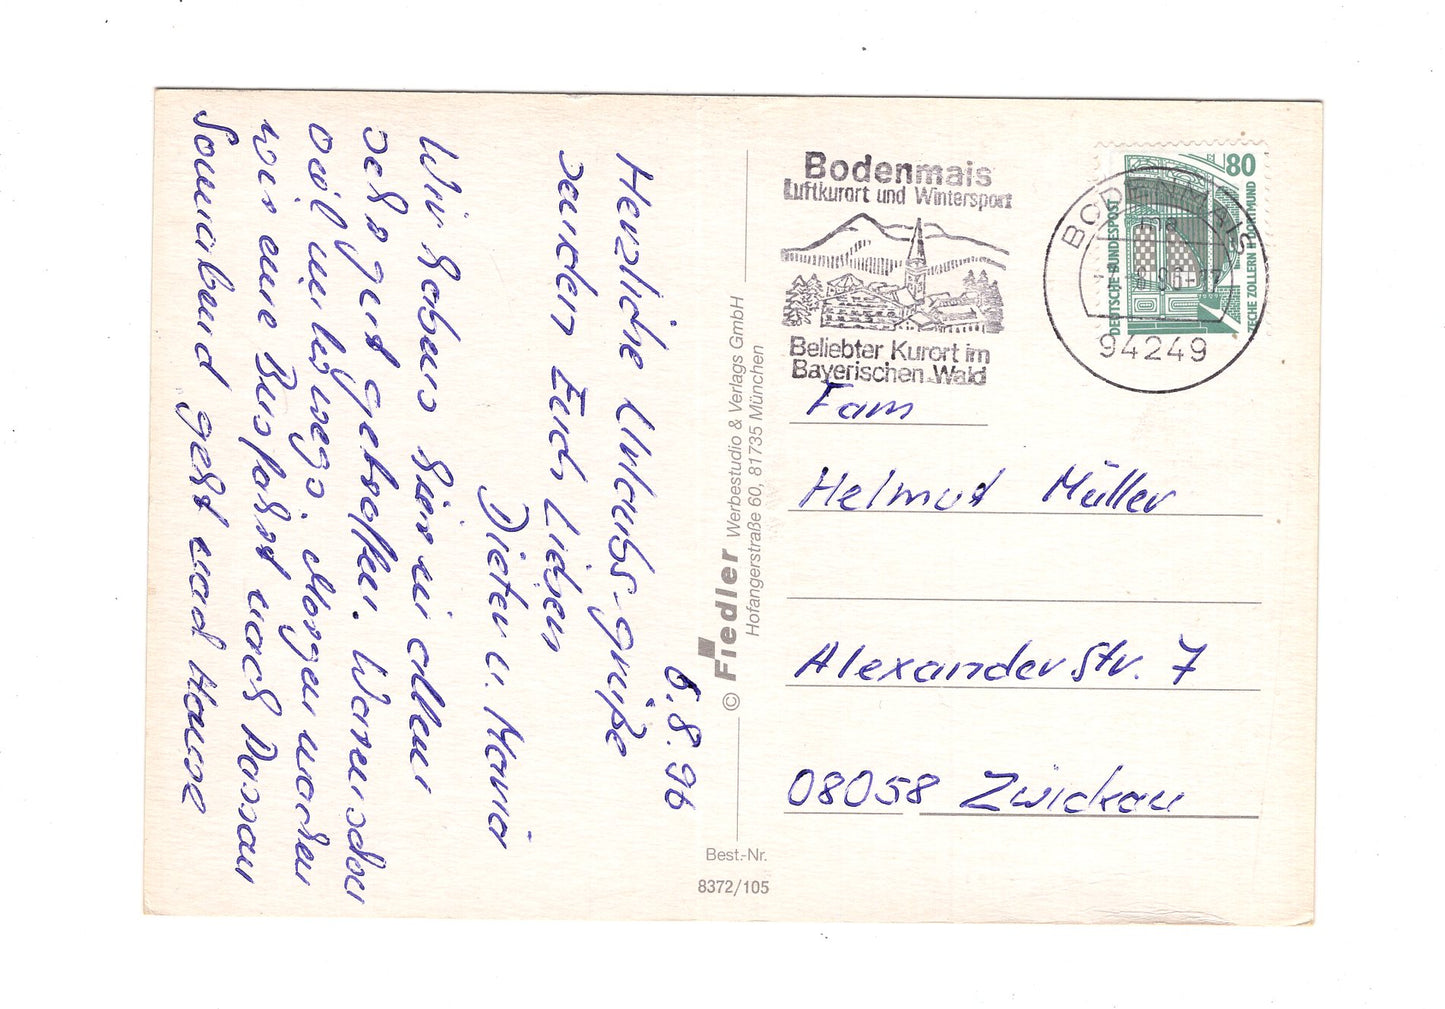 6.8.96
Herzliche Urlaubsgrüße
senden Euch Lieben
Dieter u. Maria
Wir haben hier in allem
sehr gut getroffen. Waren schon
viel unterwegs. Morgen machen
wir eine Busfahrt nach Passau
Sonnabend geht nach Hause
© Fiedler Werbestudio & Verlags GmbH
Hofangerstraße 60, 81735 München
Best.-Nr.
8372/105
Bodenmais
Luftkurort und Wintersport
Beliebter Kurort im
Bayerischen Wald
BODENMAIS
96-17
94249
80
DEUTSCHE BUNDESPOST
ZECHE ZOLLERN II DORTMUND
Fam
Helmut Müller
Alexanderstr. 7
08058 Zwickau